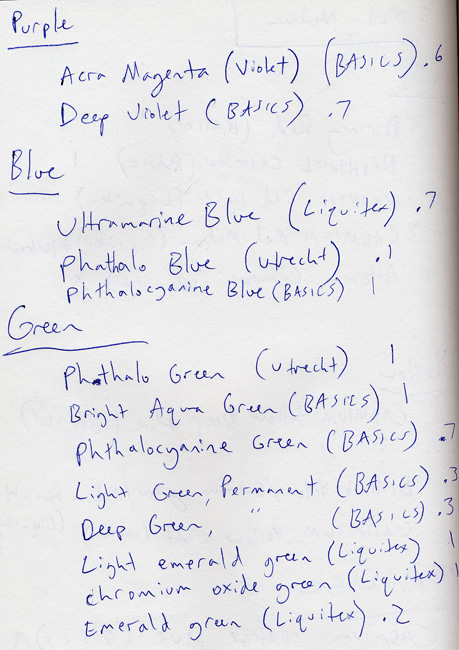 Purple
Acra Magenta (Violet) (BASICS) .6
Deep Violet (BASICS) .7
Blue
Ultramarine Blue (Liquitex) .7
Phathalo Blue (Utrecht) .1
Phthalocyanine Blue (BASICS) 1
Green
Phathalo Green (Utrecht) 1
Bright Aqua Green (BASICS) 1
Phthalocyanine Green (BASICS) .7
Light Green, Permanent (BASICS) .3
Deep Green, " (BASICS) .3
Light emerald green (Liquitex) 1
chromium oxide green (Liquitex) 1
Emerald green (Liquitex) .2